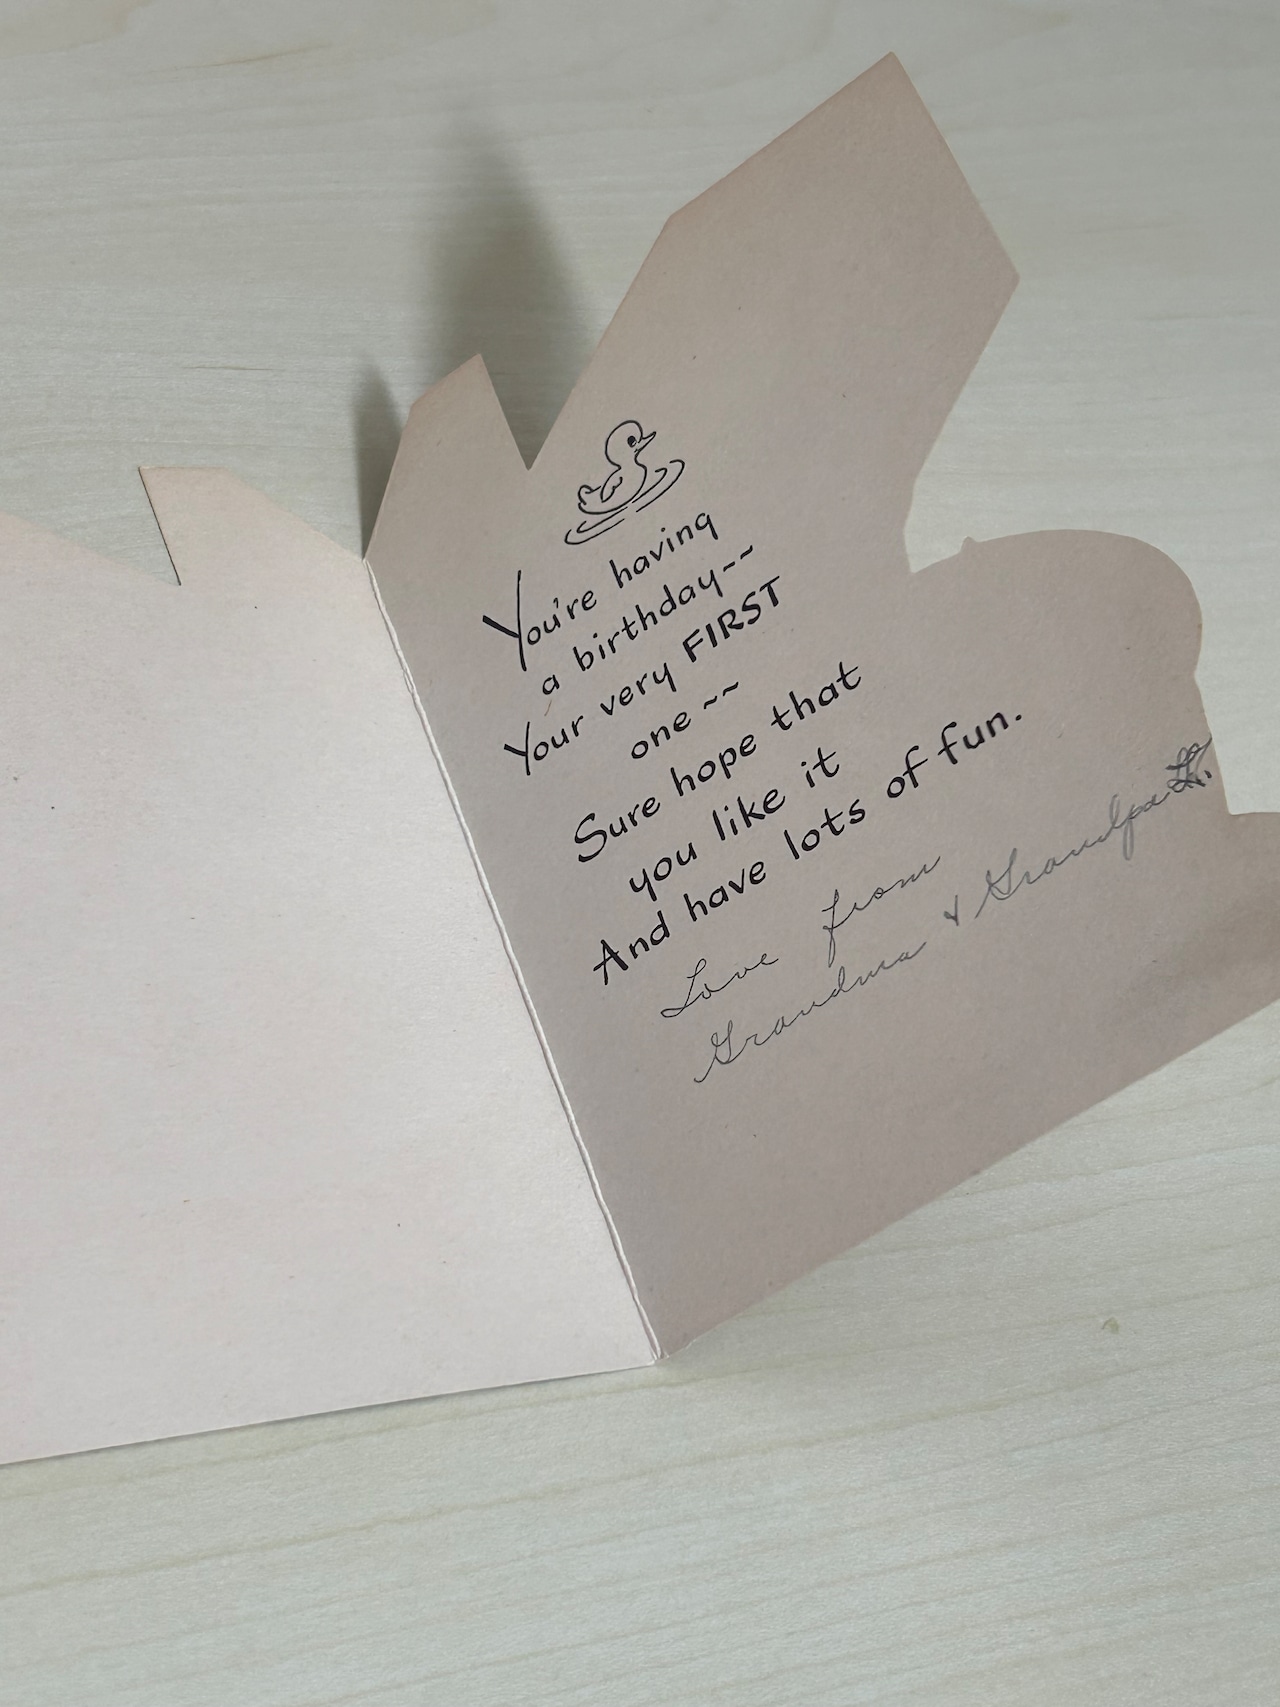 You're having
a birthday~~
Your very FIRST
one ~~
Sure hope that
you like it
And have lots of fun.
Love from
Grandma & Grandpa